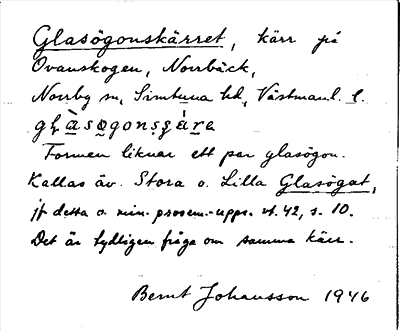 Glasögonskärret, kärr på
Ovanskogen, Norrbäck,
Norrby sn, Simtuna hd, Västmanl. l.
glàsogonsʂäre
Formen liknar ett par glasögon.
Kallas äv. Stora o. Lilla Glasögat,
jf detta o. min. prosem.-upps. vt. 42, s. 10.
Det är tydligen fråga om samma kärr.
Bernt Johansson 1946